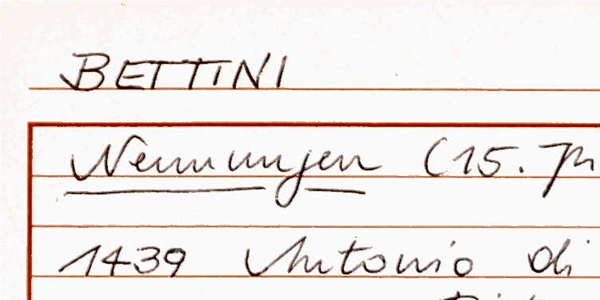 BETTINI
Nennungen (15. Jh
1439 Antonio di